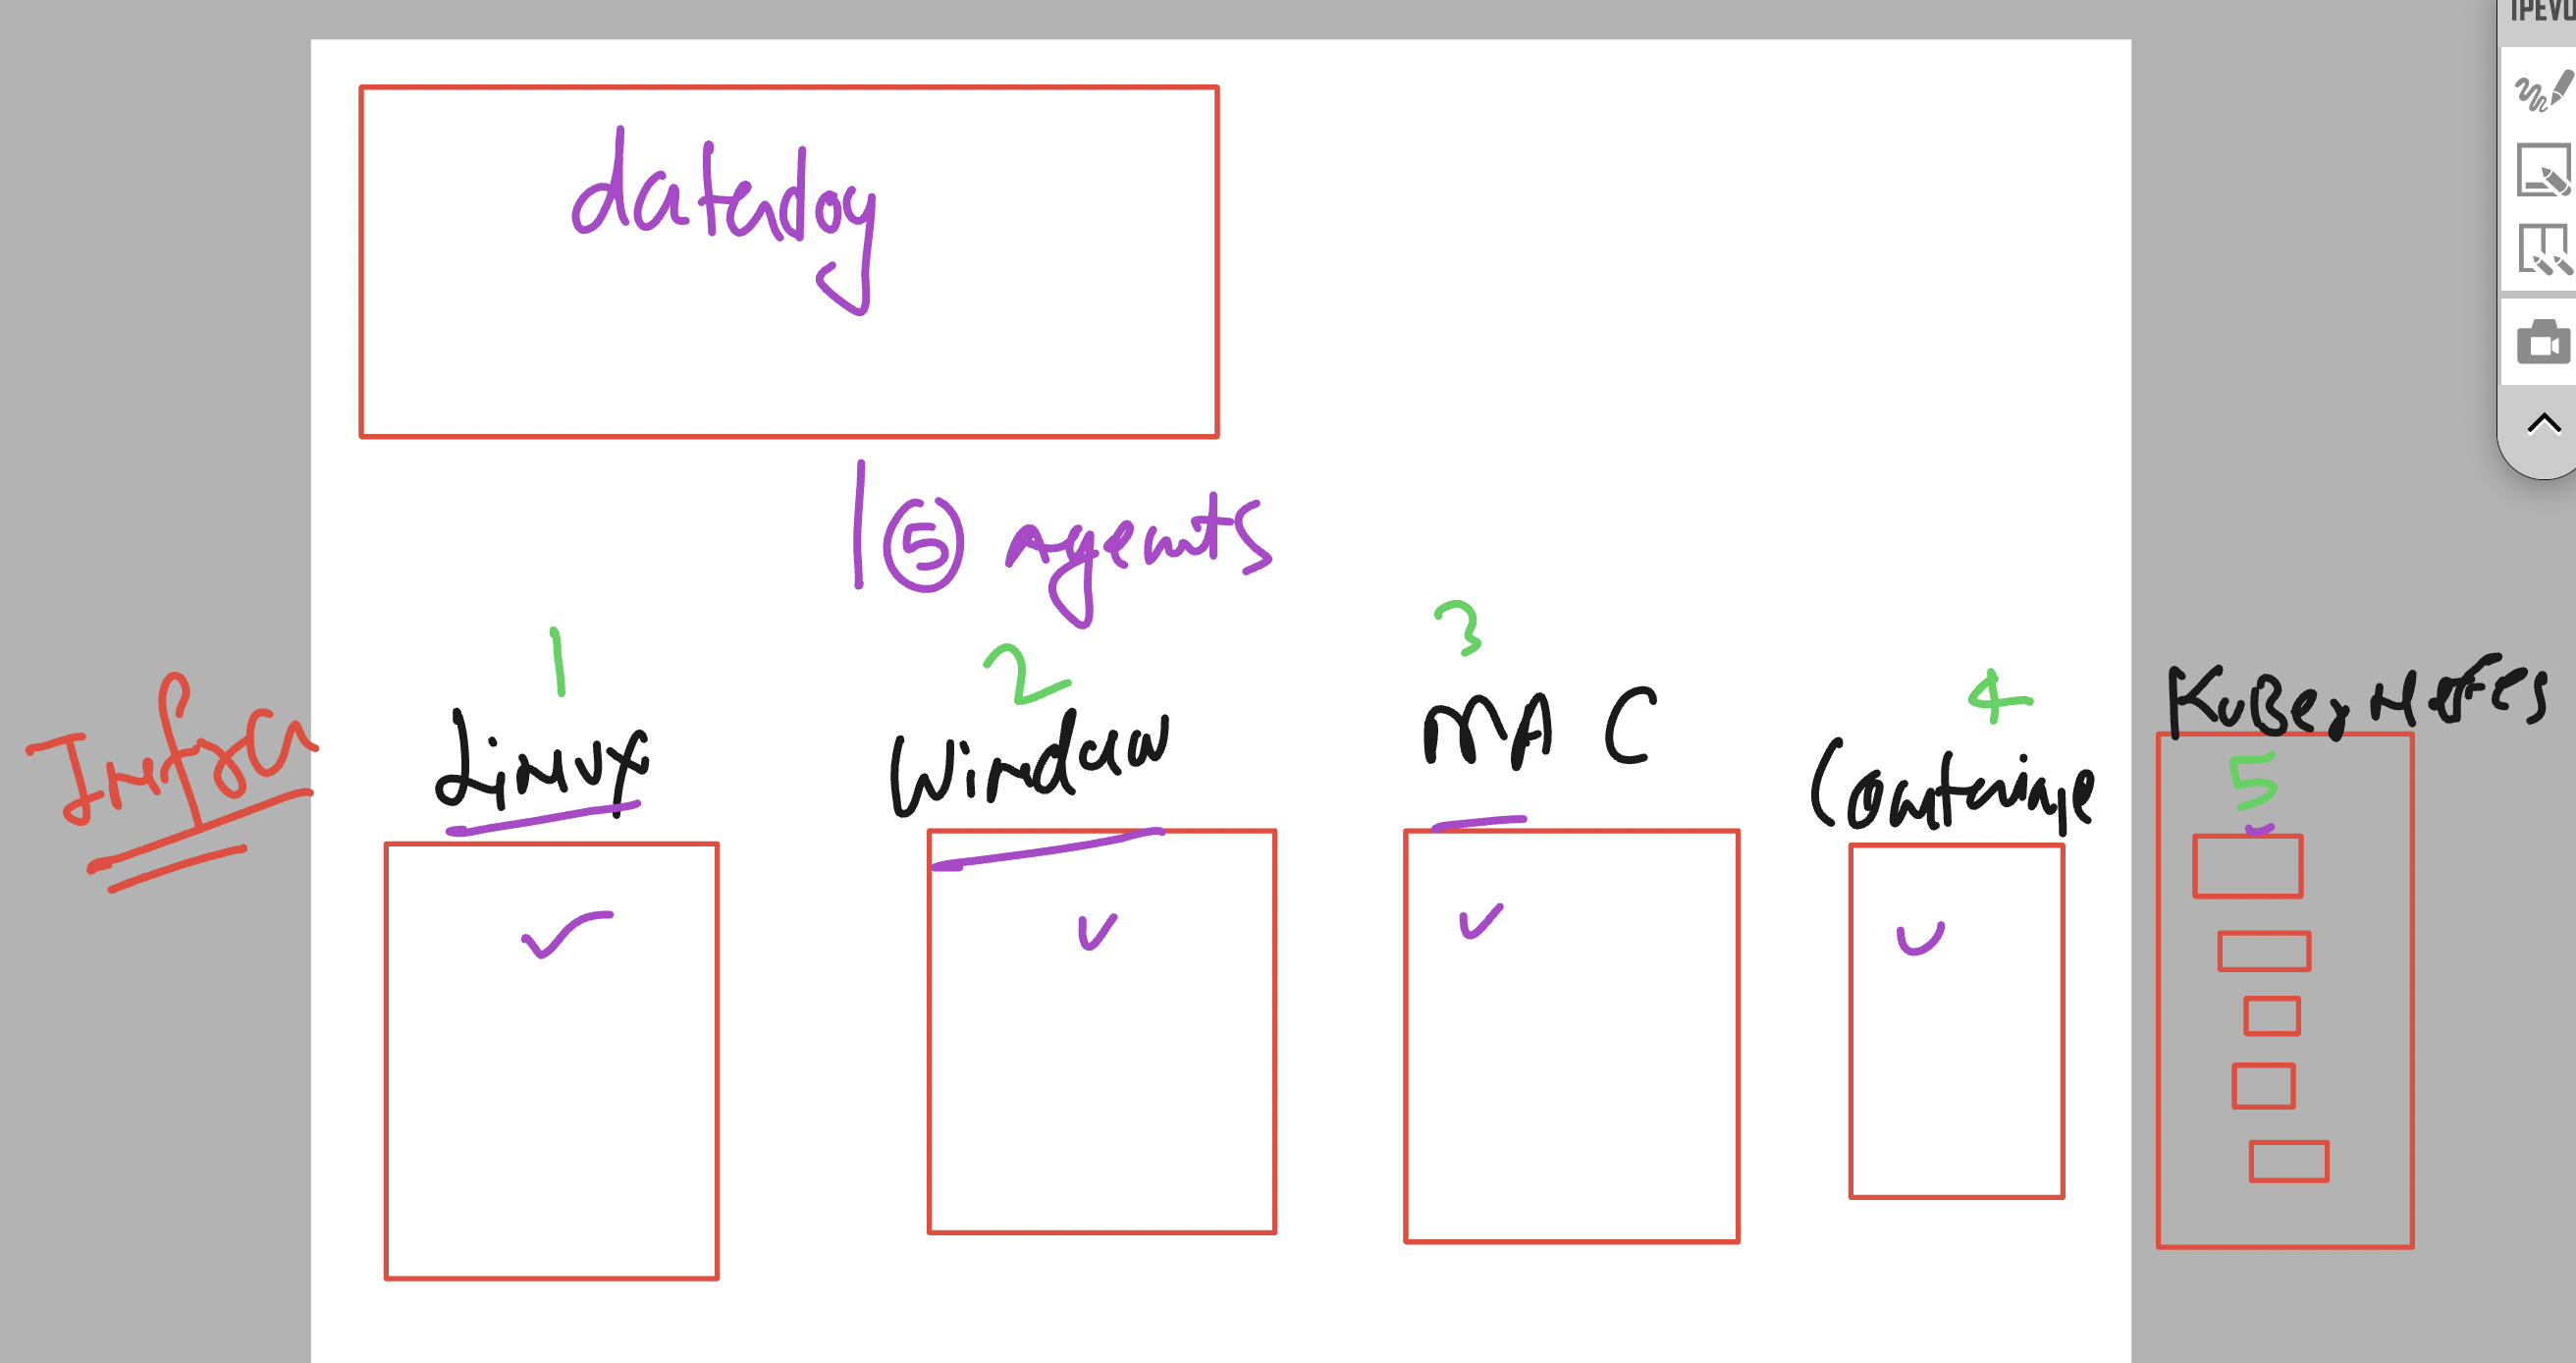 IPEVO
datadog
5 agents
1 2 3 4
Infra Linux Window MAC Container Kubernetes
5